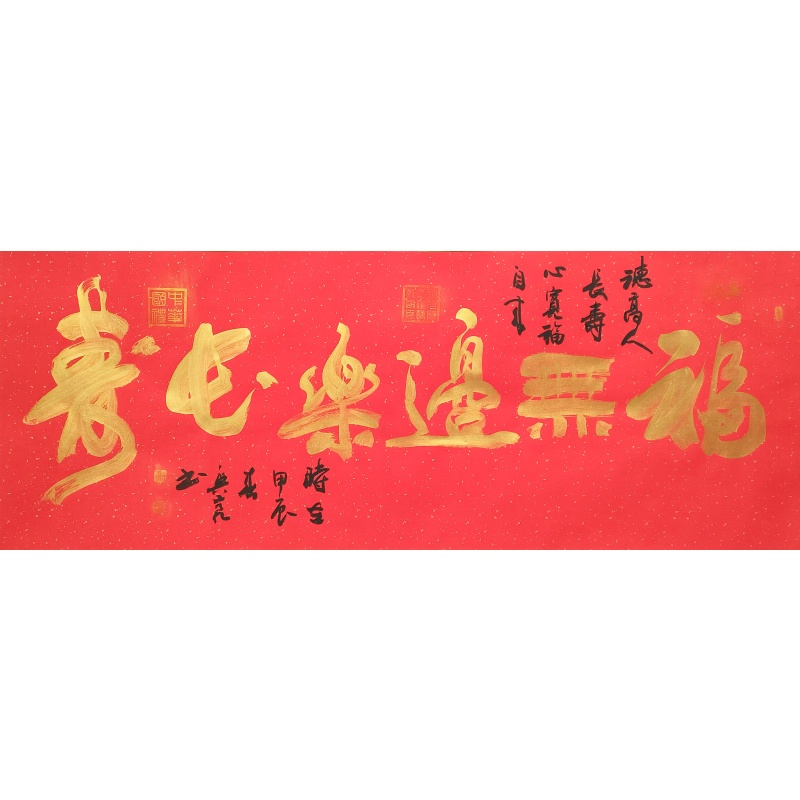 福無邊樂长壽
德高人
長壽
心寬福
自来
時在
甲辰
春
书
中華
國禮